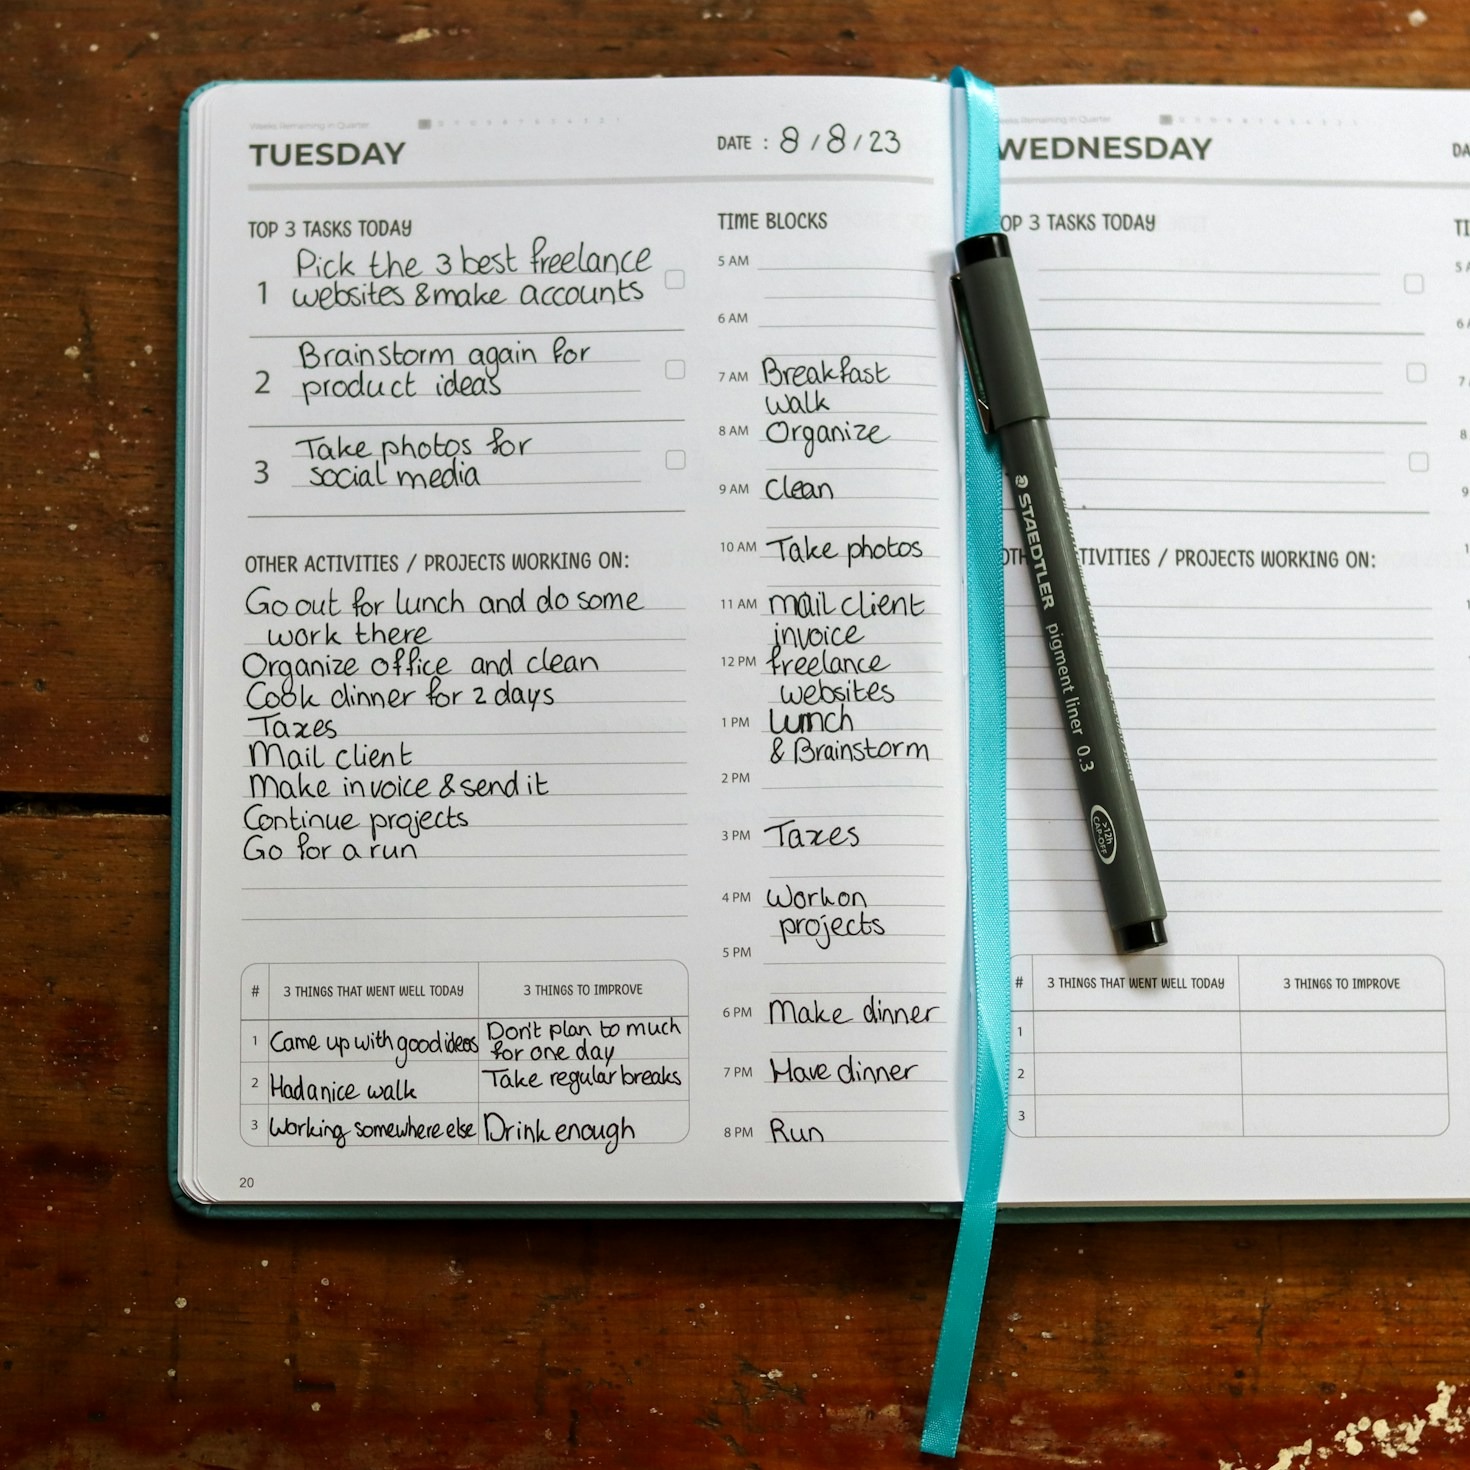 Weeks Remaining in Quarter
TUESDAY
DATE : 8 / 8 / 23
TOP 3 TASKS TODAY
1 Pick the 3 best freelance
websites & make accounts
2 Brainstorm again for
product ideas
3 Take photos for
social media
OTHER ACTIVITIES / PROJECTS WORKING ON:
Go out for lunch and do some
work there
Organize office and clean
Cook dinner for 2 days
Taxes
Mail client
Make invoice & send it
Continue projects
Go for a run
# 3 THINGS THAT WENT WELL TODAY 3 THINGS TO IMPROVE
1 Came up with good ideas Don't plan to much
for one day
2 Had a nice walk Take regular breaks
3 Working somewhere else Drink enough
20
TIME BLOCKS
5 AM
6 AM
7 AM Breakfast
walk
8 AM Organize
9 AM Clean
10 AM Take photos
11 AM mail client
invoice
12 PM freelance
websites
1 PM Lunch
& Brainstorm
2 PM
3 PM Taxes
4 PM Work on
projects
5 PM
6 PM Make dinner
7 PM Have dinner
8 PM Run
Weeks Remaining in Quarter
WEDNESDAY
DA
TOP 3 TASKS TODAY
TI
5 A
6
7
8
9
OTH TIVITIES / PROJECTS WORKING ON:
# 3 THINGS THAT WENT WELL TODAY 3 THINGS TO IMPROVE
1
2
3
STAEDTLER pigment liner 0.3
>12h
CAP-OFF